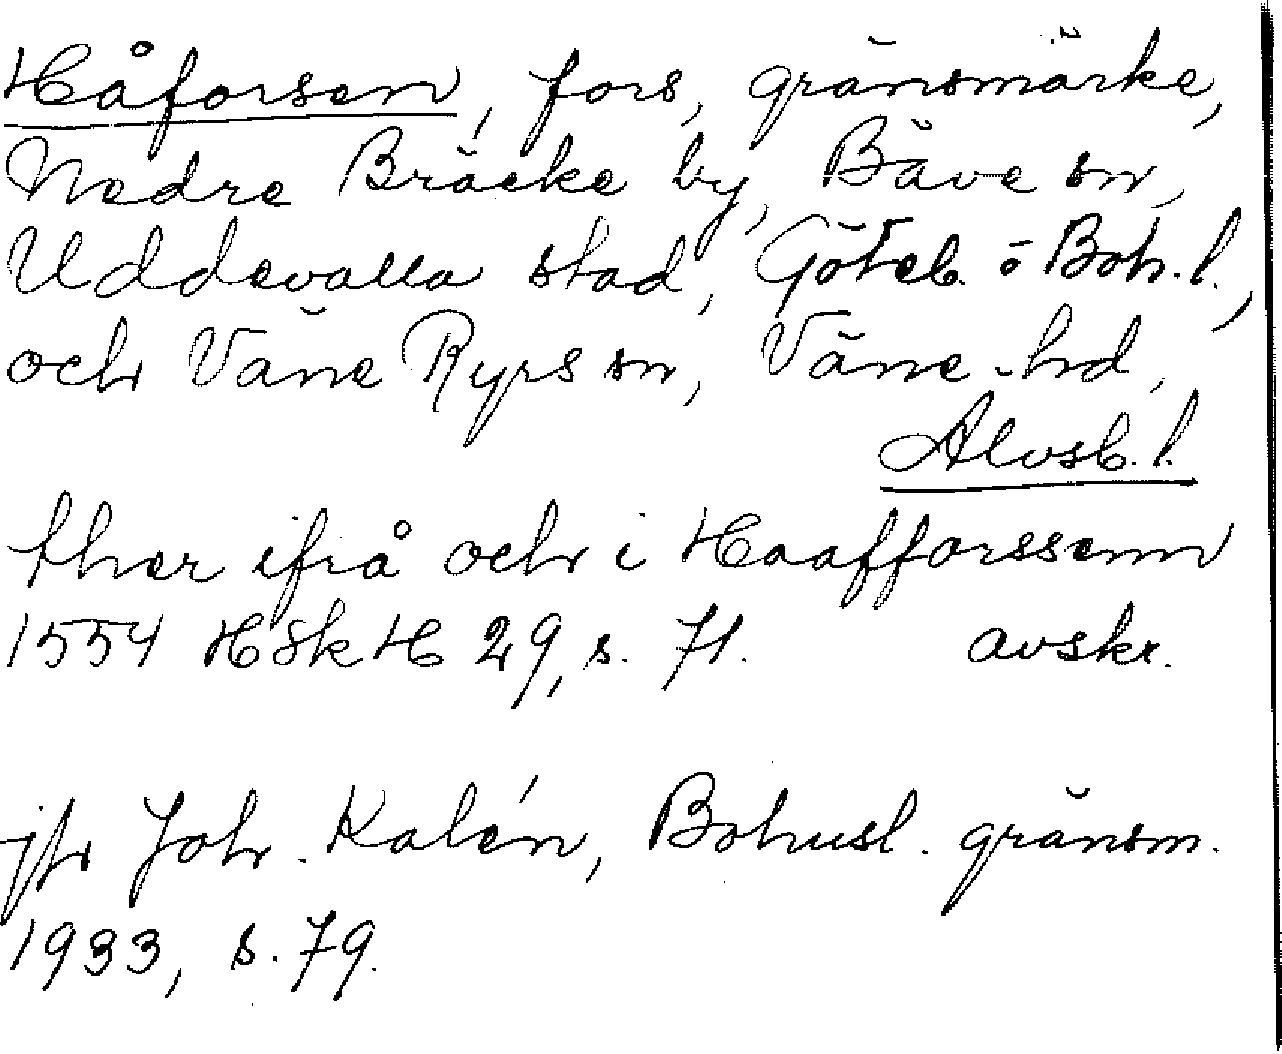 Håforsen, fors, gränsmärke,
Nedre Bräcke by, Bäve sn,
Uddevalla stad, Göteb. o Boh. l.,
och Väne Ryrs sn, Väne hd,
Älvsb. l.
ther ifrå och i Haafforssenn
1554 HSkH 29, s. 71. avskr.
jfr Joh. Kalén, Bohusl. gränsm.
1933, s. 79.